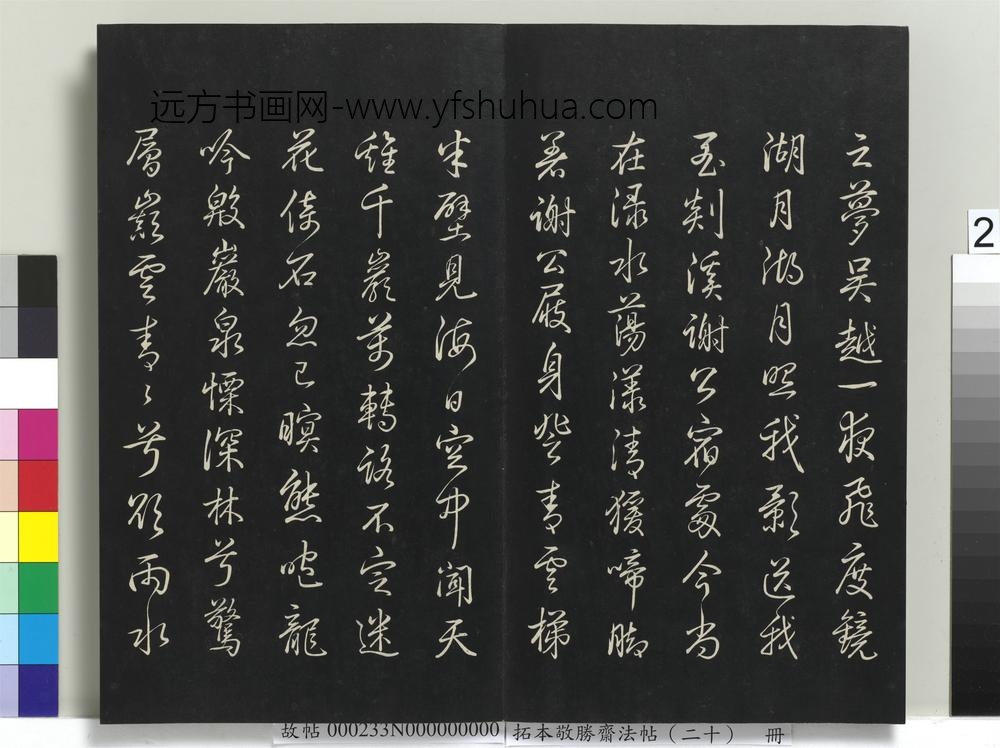 远方书画网-www.yfshuhua.com
之夢吳越一夜飛度鏡
湖月湖月照我影送我
至剡溪謝公宿處今尚
在淥水蕩漾清猨啼腳
着謝公屐身登青雲梯
半壁見海日空中聞天
雞千巖萬轉路不定迷
花倚石忽已暝熊咆龍
吟殷巖泉慄深林兮驚
層巔雲青〻兮欲雨水
2
故帖 000233N000000000
拓本敬勝齋法帖（二十） 冊